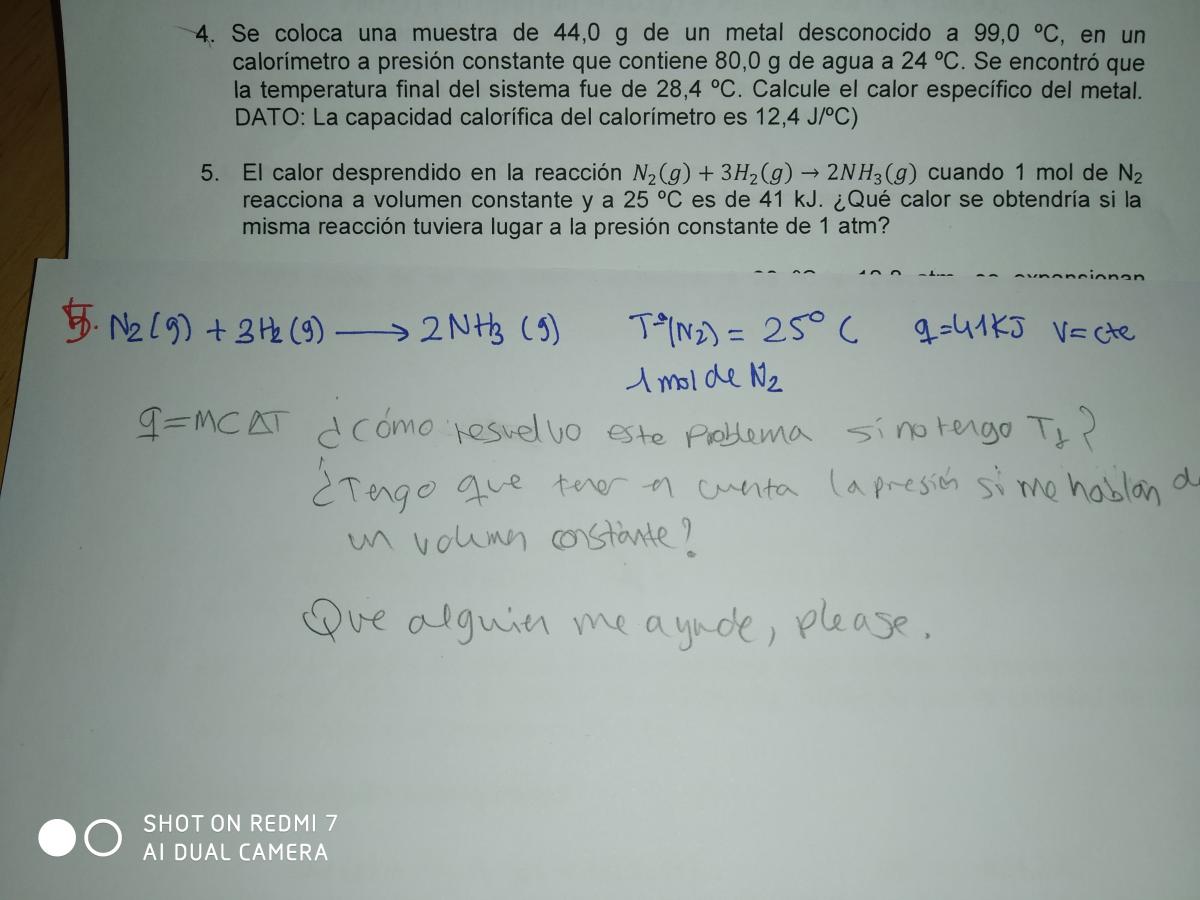 4. Se coloca una muestra de 44,0 g de un metal desconocido a 99,0 ºC, en un
calorímetro a presión constante que contiene 80,0 g de agua a 24 ºC. Se encontró que
la temperatura final del sistema fue de 28,4 ºC. Calcule el calor específico del metal.
DATO: La capacidad calorífica del calorímetro es 12,4 J/ºC)
5. El calor desprendido en la reacción N₂(g) + 3H₂(g) → 2NH₃(g) cuando 1 mol de N₂
reacciona a volumen constante y a 25 ºC es de 41 kJ. ¿Qué calor se obtendría si la
misma reacción tuviera lugar a la presión constante de 1 atm?
5. N₂(g) + 3H₂(g) → 2NH₃ (g) Tª(N₂) = 25º C q=41KJ V=cte
1 mol de N₂
q=MCΔT ¿Cómo resuelvo este problema si no tengo Tf?
¿Tengo que tener en cuenta la presión si me hablan de
un volumen constante?
Que alguien me ayude, please.
SHOT ON REDMI 7
AI DUAL CAMERA